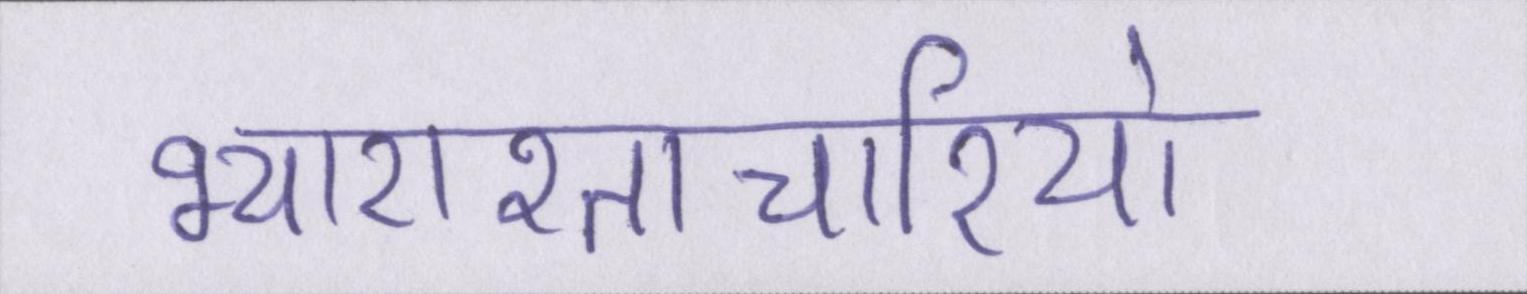 भ्याराश्ताचारियो